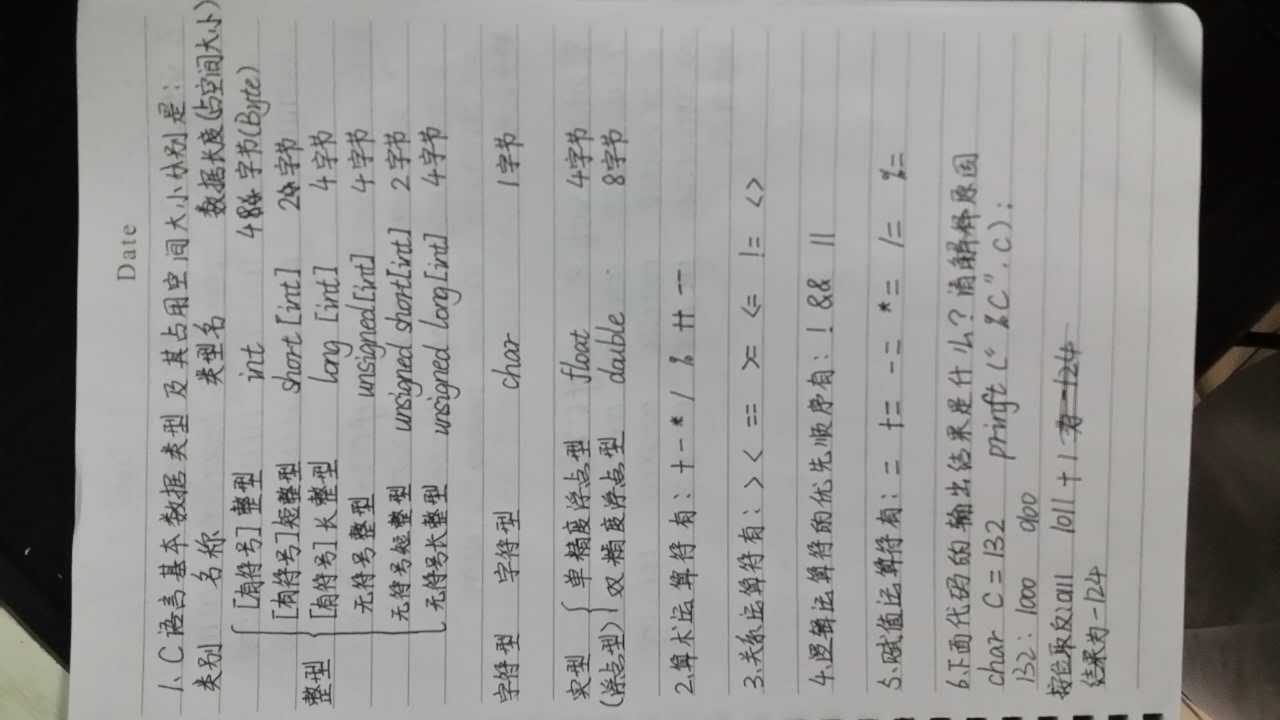 Date
1、C语言基本数据类型及其占用空间大小分别是：
类别 名称 类型名 数据长度(占空间大小)
[有符号]整型 int 484字节(Byte)
[有符号]短整型 short [int] 2字节
整型 [有符号]长整型 long [int] 4字节
无符号整型 unsigned[int] 4字节
无符号短整型 unsigned short[int] 2字节
无符号长整型 unsigned long[int] 4字节
字符型 字符型 char 1字节
实型 单精度浮点型 float 4字节
(浮点型) 双精度浮点型 double 8字节
2、算术运算符有：+ - * / % ++ --
3、关系运算符有：> < == >= <= != <>
4、逻辑运算符的优先顺序有：! && ||
5、赋值运算符有：= += -= *= /= %=
6、下面代码的输出结果是什么？请解释原因
char C=132 prinft ("%C".C);
132: 1000 0100
按位取反 1011 +1 为-124
结果为-124